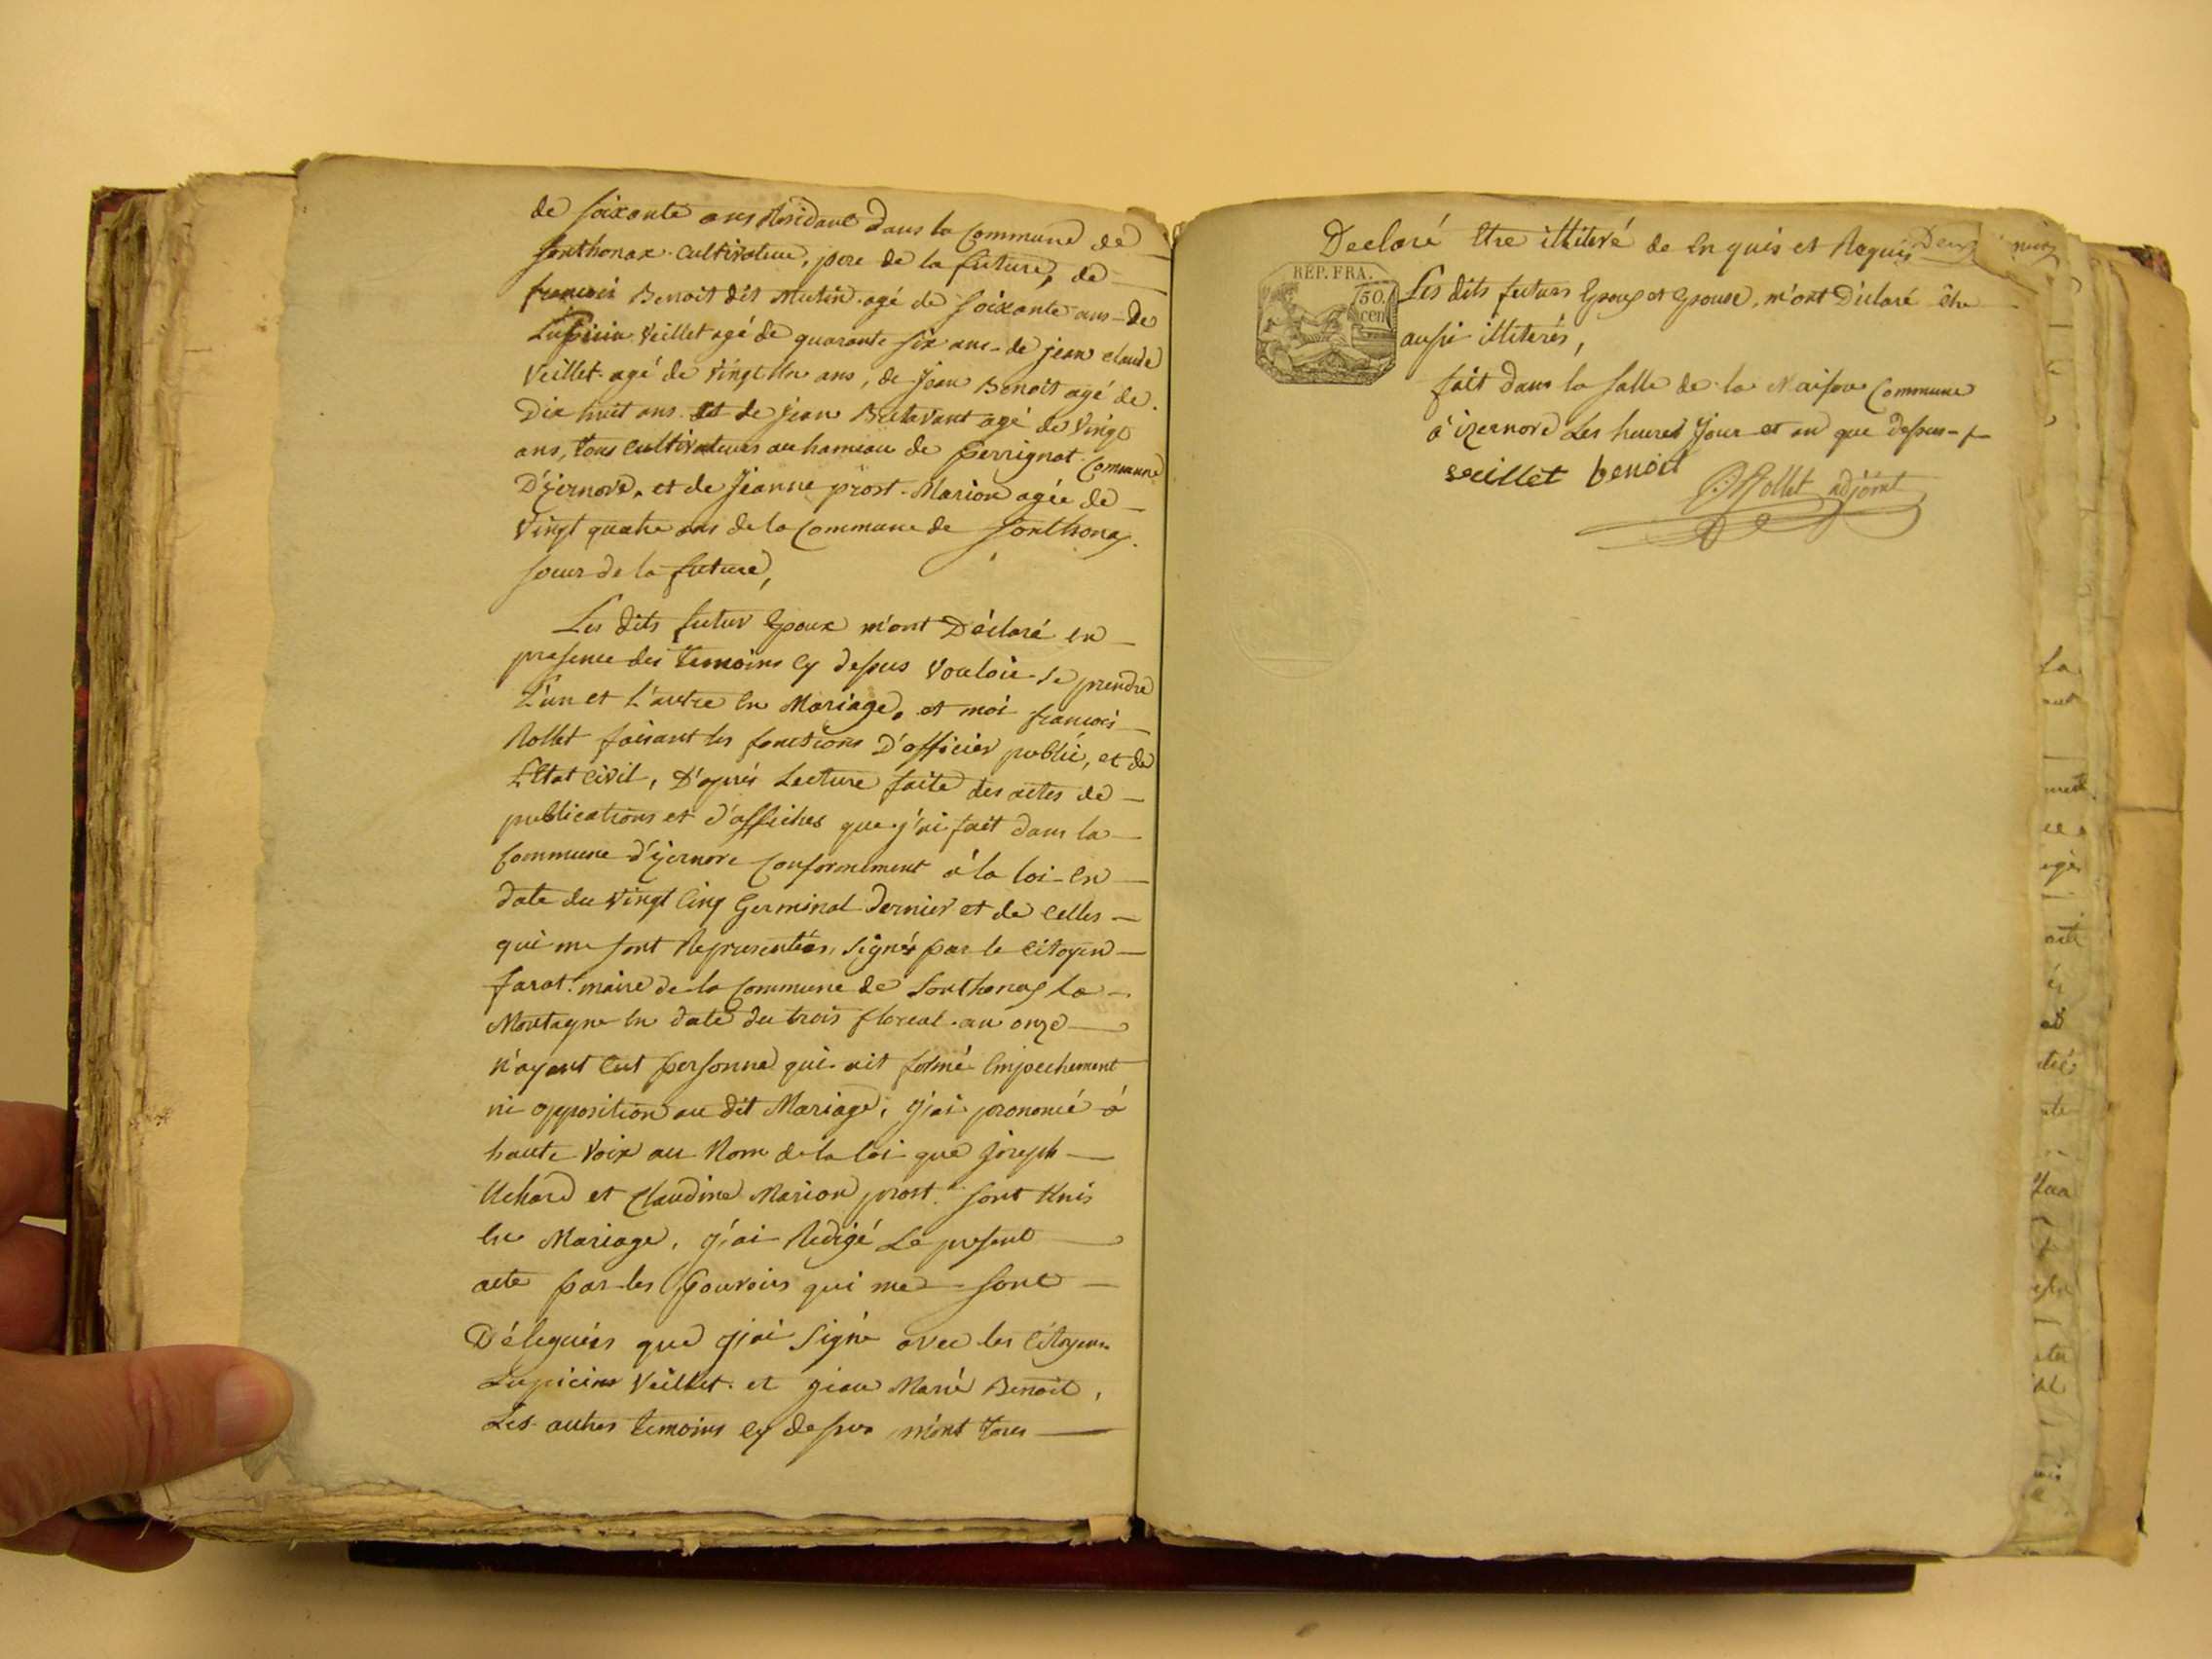 de soixante ans Residant dans la Commune de
sonthonax cultivateur, pere de la future, de
francois Benoit dit Mutin agé de soixante ans - de
Lupicin Veillet agé de quarante six ans - de jean claude
Veillet agé de vingt un ans, de Jean Benoit agé de
Dix huit ans et de jean agé de vingt
ans, tous cultivateurs au hameau de perrignat commune
D'izernore, et de Jeanne prost Marion agée de
vingt quatre ans de la Commune de sonthonax
soeur de la future,
Les dits futur Epoux m'ont Déclaré en
presence des temoins cy dessus vouloir se prendre
L'un et L'autre en Mariage, et moi francois
Rollet faisant les fonctions D'officier public, et de
L'Etat civil, D'aprés Lecture faite des actes de
publications et d'affiches que j'ai fait dans la
Commune d'izernore Conformément à la loi en
date du vingt cinq Germinal dernier et de celles
qui me sont Representées, signés par le citoyen
farat maire de la Commune de Sonthonax la
Montagne en date du trois floreal an onze
n'ayant eut personne qui ait formé empechement
ni opposition au dit Mariage, j'ai prononcé à
haute voix au Nom de la loi que joseph
Uchard et Claudine Marion prost sont unis
en Mariage, j'ai Redigé Le present
acte par les pouvoirs qui me sont
Délegués que j'ai signé avec les Citoyens
Lupicin Veillet et jean Marie Benoit,
Les autres temoins cy dessus m'ont tous
Declaré Etre illiteré de Enquis et Requis
REP. FRA.
50.
cen
Les dits futurs Epoux et Epouse, m'ont Déclaré être
aussi illiterés,
fait dans la salle de la Maison Commune
à izernore Les heures Jour et an que dessus
veillet benoit
Rollet adjoint